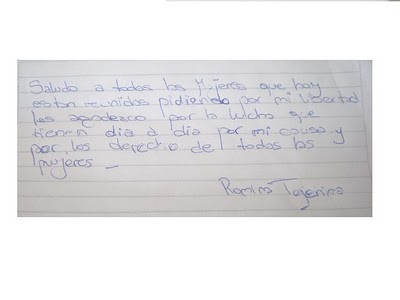 Saludo a todas las Mujeres que hoy
estan reunidas pidiendo por mi libertad
les agradezco por la lucha que
tienen dia a dia por mi causa y
por los derecho de todas las
mujeres _
Romina Tejerina